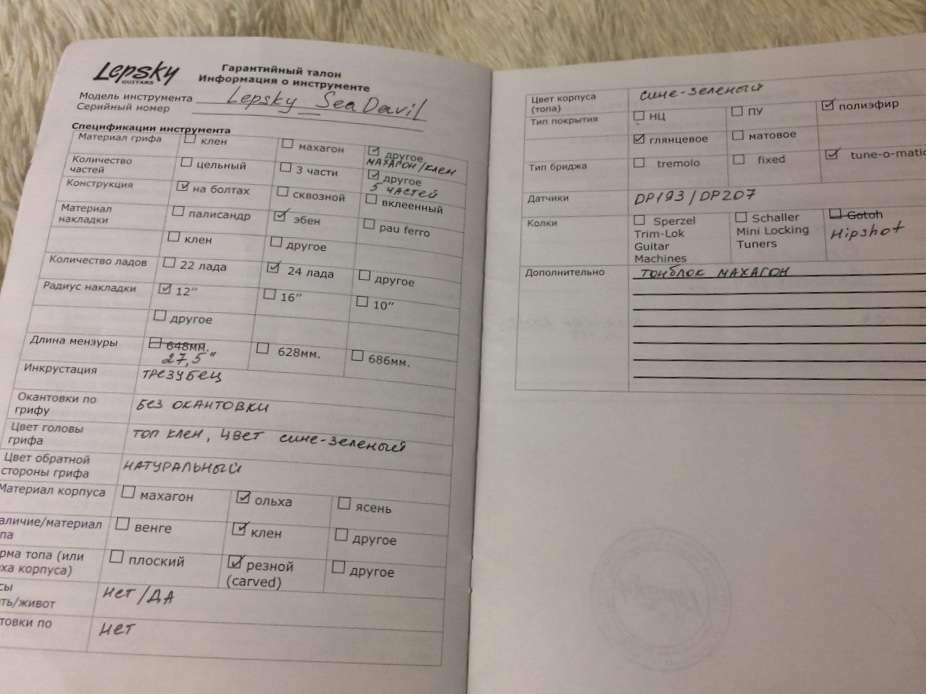 Lepsky
GUITARS
Гарантийный талон
Информация о инструменте
Модель инструмента Lepsky SeaDavil
Серийный номер
Спецификации инструмента
Материал грифа клен махагон другое
МАХАГОН/КЛЕН
Количество частей цельный 3 части другое
5 ЧАСТЕЙ
Конструкция на болтах сквозной вклеенный
Материал накладки палисандр эбен pau ferro
клен другое
Количество ладов 22 лада 24 лада другое
Радиус накладки 12" 16" 10"
другое
Длина мензуры 648мм. 628мм. 686мм.
27,5"
Инкрустация ТРЕЗУБЕЦ
Окантовки по грифу БЕЗ ОКАНТОВКИ
Цвет головы грифа ТОП КЛЕН, ЦВЕТ СИНЕ-ЗЕЛЕНЫЙ
Цвет обратной стороны грифа НАТУРАЛЬНЫЙ
Материал корпуса махагон ольха ясень
аличие/материал
па венге клен другое
рма топа (или
ха корпуса) плоский резной (carved) другое
сы
ть/живот НЕТ/ДА
товки по НЕТ
Цвет корпуса (топа) СИНЕ-ЗЕЛЕНЫЙ
Тип покрытия НЦ ПУ полиэфир
глянцевое матовое
Тип бриджа tremolo fixed tune-o-matic
Датчики DP193/DP207
Колки Sperzel Trim-Lok Guitar Machines Schaller Mini Locking Tuners Gotoh
Hipshot
Дополнительно ТОНБЛОК МАХАГОН